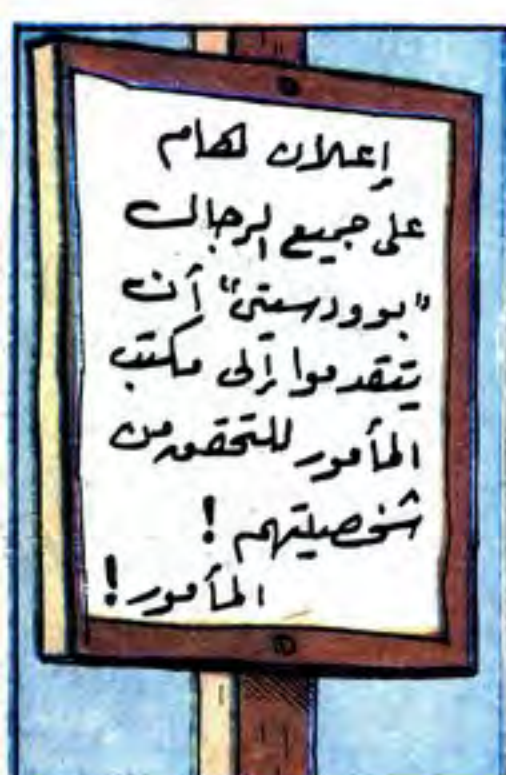 إعلان هام
على جميع الرجال
"بوودسيتى" أن
يتقدموا إلى مكتب
المأمور للتحقق من
شخصيتهم !
المأمور !